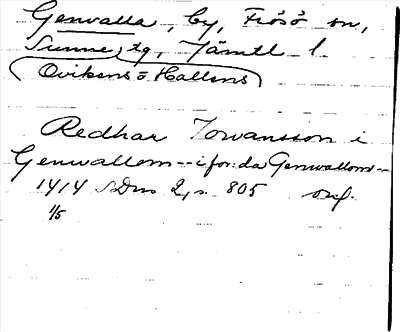 Genvalla, by, Frösö sn,
Sunne tg, Jämtl l.
(Ovikens o Hallens)
Redhar Jowansson i
Genwallom -- i for:da Genwallom --
1414 SDns 2, s. 805 orig.
1/5